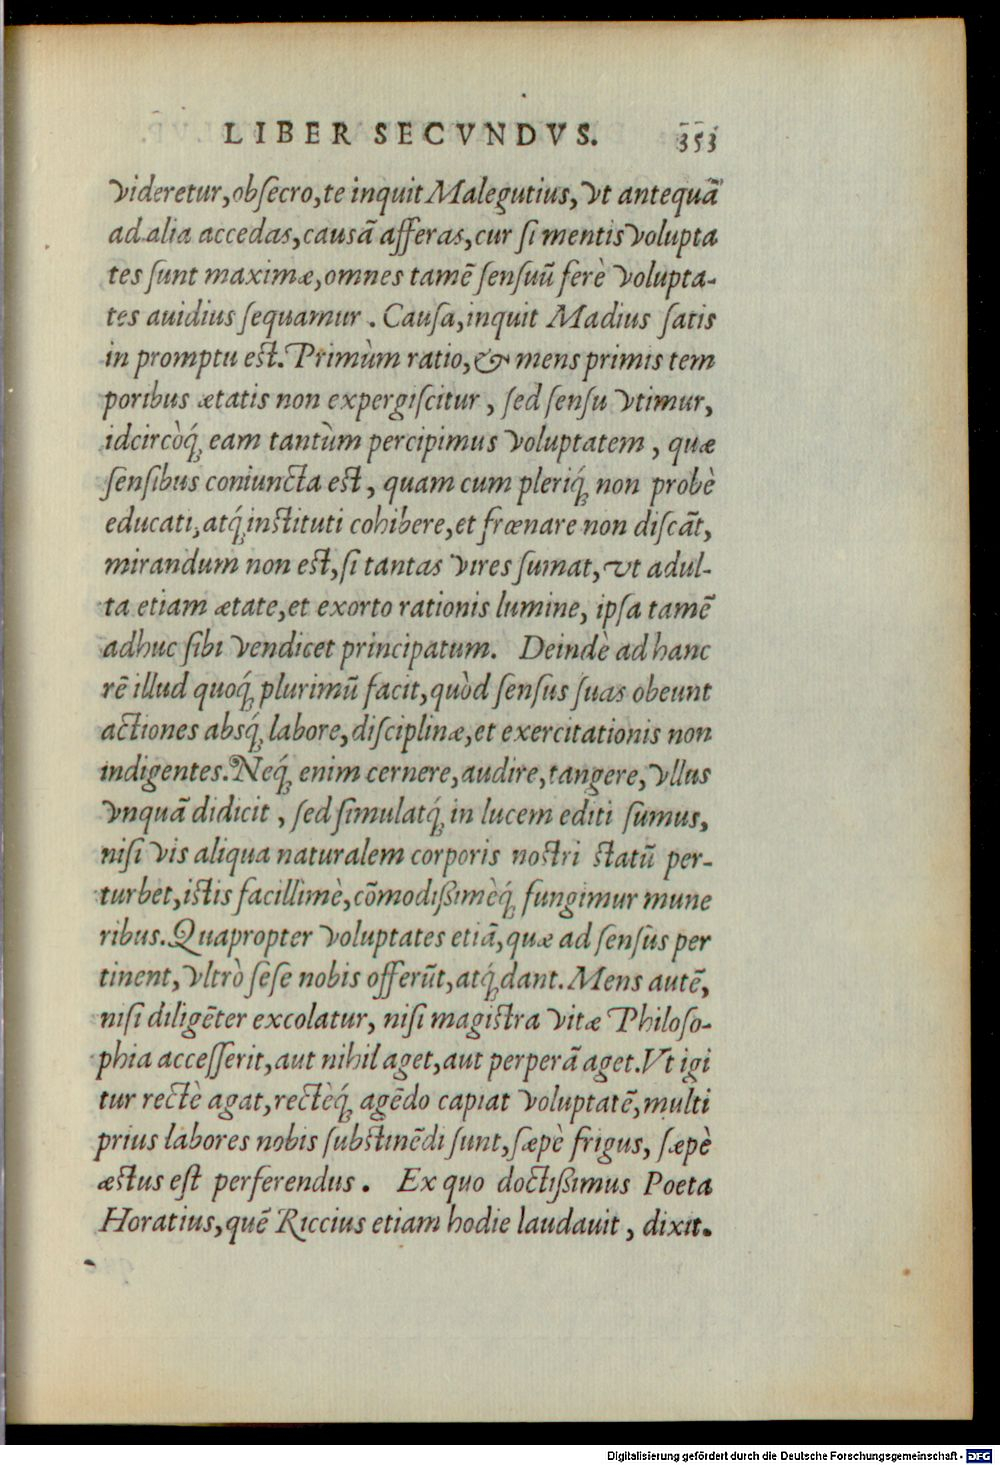 LIBER SECVNDVS. 353
videretur, obſecro, te inquit Malegutius, vt antequã
ad alia accedas, cauſã afferas, cur ſi mentis volupta
tes ſunt maximæ, omnes tamẽ ſenſuũ ferè volupta-
tes auidius ſequamur. Cauſa, inquit Madius ſatis
in promptu eſt. Primùm ratio, & mens primis tem
poribus ætatis non expergiſcitur, ſed ſenſu vtimur,
idcircòq́; eam tantùm percipimus voluptatem, quæ
ſenſibus coniuncta eſt, quam cum pleriq́; non probè
educati, atq́; inſtituti cohibere, et frœnare non diſcãt,
mirandum non eſt, ſi tantas vires ſumat, vt adul-
ta etiam ætate, et exorto rationis lumine, ipſa tamẽ
adhuc ſibi vendicet principatum. Deindè ad hanc
rẽ illud quoq́; plurimũ facit, quòd ſenſus ſuas obeunt
actiones absq́; labore, diſciplinæ, et exercitationis non
indigentes. Neq́; enim cernere, audire, tangere, vllus
vnquã didicit, ſed ſimulatq́; in lucem editi ſumus,
niſi vis aliqua naturalem corporis noſtri ſtatũ per-
turbet, iſtis facillimè, cõmodißimèq́; fungimur mune
ribus. Quapropter voluptates etiã, quæ ad ſenſus per
tinent, vltrò ſeſe nobis offerũt, atq́; dant. Mens autẽ,
niſi diligẽter excolatur, niſi magiſtra vitæ Philoſo-
phia acceſſerit, aut nihil aget, aut perperã aget. Vt igi
tur rectè agat, rectèq́; agẽdo capiat voluptatẽ, multi
prius labores nobis ſubſtinẽdi ſunt, ſæpè frigus, ſæpè
æſtus eſt perferendus. Ex quo doctißimus Poeta
Horatius, quẽ Riccius etiam hodie laudauit, dixit.
Digitalisierung gefördert durch die Deutsche Forschungsgemeinschaft - DFG